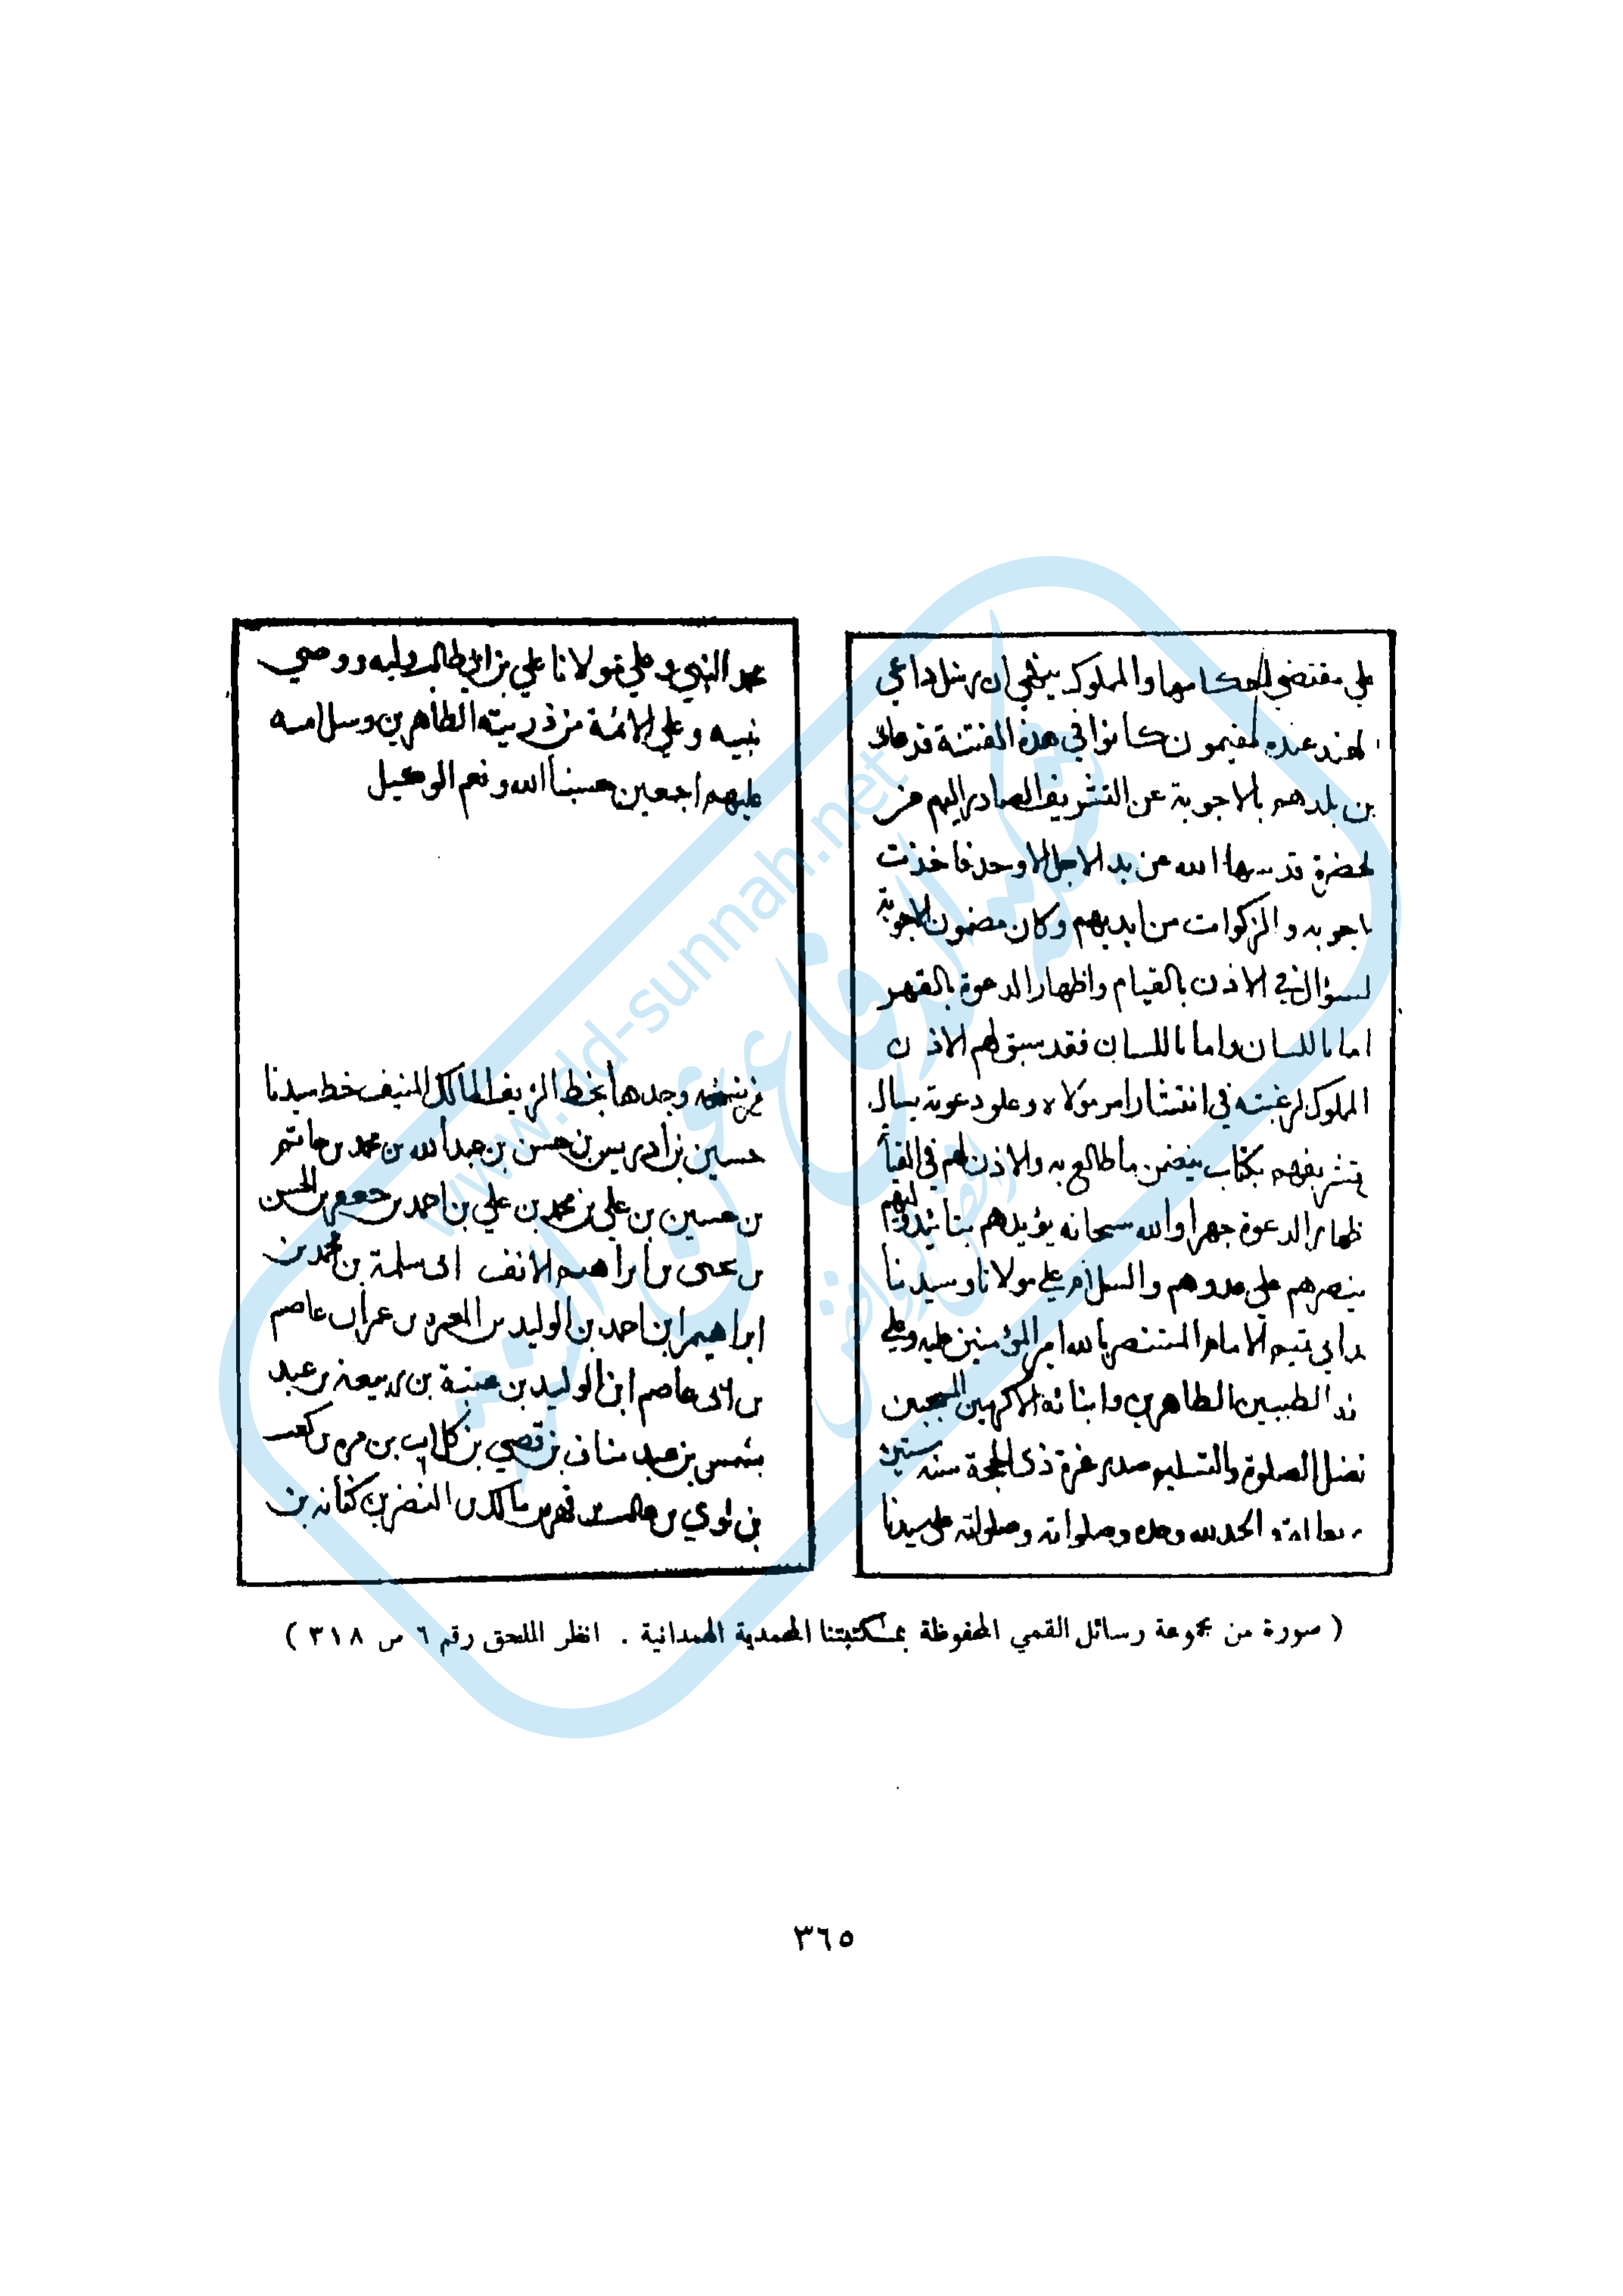 علي مقتضي احكامها والمملوك ينهي ان رسل داعي
لهند عنده مقيمون كانوا في هذه الفتنة قد
بن بلدهم بالاجوبة عن التشريف الصادر اليهم من
لحضرة قدسها الله عن يد الاجل الاوحد فاخذت
اجوبه والزكوات من ايديهم وكان مضمون الاجوبة
لسؤال في الاذن بالقيام واظهار الدعوة بالقهر
اما باللسان واما باللسان فقد سبق لهم الاذن
المملوك لرغبته في انتشار امر مولاه وعلو دعوته يسال
تشريفهم بكتاب يتضمن ما طالع به والاذن لهم في القيا
ظهار الدعوة جهرا والله سبحانه يؤيدهم بتائيد وليهم
ينصرهم علي عدوهم والسلام علي مولانا وسيدنا
دابي تميم الامام المستنصر بالله امير المؤمنين عليه وعلي
الطيبين الطاهرين وابنائه الاكرمين
فضل الصلوة والتسليم صدر غرة ذى الحجة سنه ستين
والحمد لله وحده وصلواته علي سيدنا
محمد النبي وعلي مولانا علي بن ابي طالب وليه ووصي
نبيه وعلي الائمة من ذريته الطاهرين وسلامه
عليهم اجمعين حسبنا الله ونعم الوكيل
وجدها بخط الشريف المالك المنيف خط سيدنا
حسين بن ادريس بن حسن بن عبد الله بن محمد بن حاتم
بن حسين بن علي بن محمد بن علي بن احمد بن جعفر بن الحسن
بن يحيى بن ابراهيم الانف ابى سلمة بن محمد بن
ابراهيم ابن احمد بن الوليد بن عمران عاصم
بن ابى عاصم ابن الوليد بن عتبة بن ربيعة بن عبد
شمس بن عبد مناف بن قصي بن كلاب بن مره بن كعب
بن لوي بن غالب بن فهر بن مالك بن النضر بن كنانه بن
( صورة من مجموعة رسائل القمي المحفوظة بمكتبتنا المحمدية الهمدانية . انظر الملحق رقم ٦ ص ٣١٨ )
٣٦٥
www.dd-sunnah.net